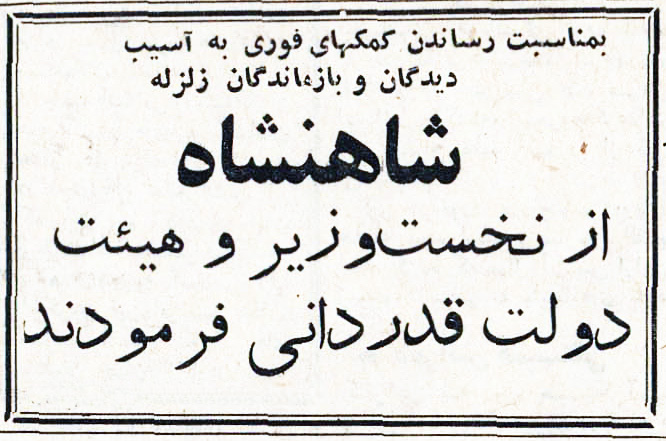 بمناسبت رساندن کمکهای فوری به آسیب
دیدگان و بازماندگان زلزله
شاهنشاه
از نخست‌وزیر و هیئت
دولت قدردانی فرمودند